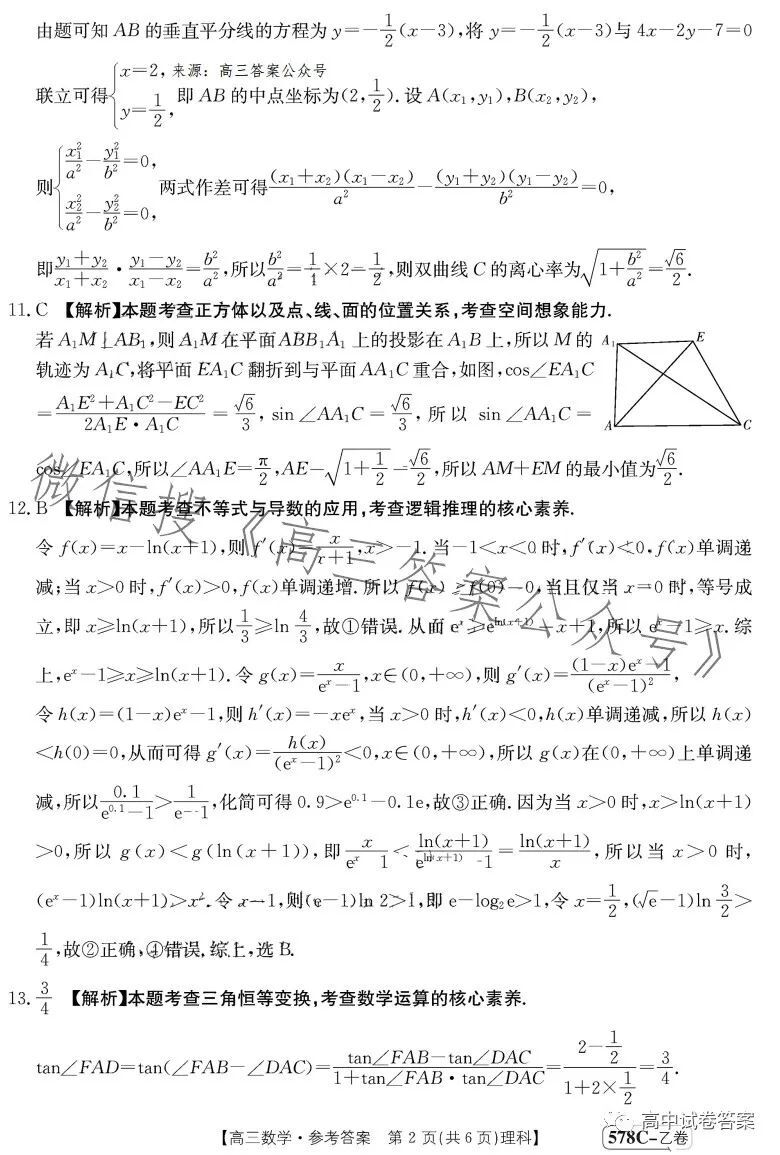 由题可知 AB 的垂直平分线的方程为 y=-1/2(x-3),将 y=-1/2(x-3)与 4x-2y-7=0
联立可得{x=2, y=1/2, 即 AB 的中点坐标为(2,1/2). 设 A(x₁,y₁),B(x₂,y₂),
来源：高三答案公众号
则{x₁²/a²-y₁²/b²=0, x₂²/a²-y₂²/b²=0, 两式作差可得(x₁+x₂)(x₁-x₂)/a²-(y₁+y₂)(y₁-y₂)/b²=0,
即(y₁+y₂)/(x₁+x₂)·(y₁-y₂)/(x₁-x₂)=b²/a²,所以b²/a²=1/4×2=1/2,则双曲线 C 的离心率为√(1+b²/a²)=√6/2.
11. C 【解析】本题考查正方体以及点、线、面的位置关系,考查空间想象能力.
若 A₁M⊥AB₁,则 A₁M 在平面 ABB₁A₁ 上的投影在 A₁B 上,所以 M 的
轨迹为 A₁C,将平面 EA₁C 翻折到与平面 AA₁C 重合,如图,cos∠EA₁C
=(A₁E²+A₁C²-EC²)/(2A₁E·A₁C)=√6/3, sin∠AA₁C=√6/3, 所以 sin∠AA₁C=
cos∠EA₁C,所以∠AA₁E=π/2,AE=√(1+1/2)=√6/2,所以 AM+EM 的最小值为√6/2.
A₁ E
A C
12. B 【解析】本题考查不等式与导数的应用,考查逻辑推理的核心素养.
令 f(x)=x-ln(x+1),则 f′(x)=x/(x+1),x>-1. 当-1<x<0 时,f′(x)<0,f(x)单调递
减;当 x>0 时,f′(x)>0,f(x)单调递增. 所以 f(x)≥f(0)=0,当且仅当 x=0 时,等号成
立,即 x≥ln(x+1),所以1/3≥ln 4/3,故①错误. 从而 eˣ≥e^(ln(x+1))=x+1,所以 eˣ-1≥x. 综
上,eˣ-1≥x≥ln(x+1). 令 g(x)=x/(eˣ-1),x∈(0,+∞),则 g′(x)=((1-x)eˣ-1)/(eˣ-1)²,
令 h(x)=(1-x)eˣ-1,则 h′(x)=-xeˣ,当 x>0 时,h′(x)<0,h(x)单调递减,所以 h(x)
<h(0)=0,从而可得 g′(x)=h(x)/(eˣ-1)²<0,x∈(0,+∞),所以 g(x)在(0,+∞)上单调递
减,所以0.1/(e^0.1-1)>1/(e-1),化简可得 0.9>e^0.1-0.1e,故③正确. 因为当 x>0 时,x>ln(x+1)
>0,所以 g(x)<g(ln(x+1)),即x/(eˣ-1)<ln(x+1)/(e^(ln(x+1))-1)=ln(x+1)/x,所以当 x>0 时,
(eˣ-1)ln(x+1)>x². 令 x=1,则(e-1)ln 2>1,即 e-log₂e>1,令 x=1/2,(√e-1)ln 3/2>
1/4,故②正确,④错误. 综上,选 B.
13. 3/4 【解析】本题考查三角恒等变换,考查数学运算的核心素养.
tan∠FAD=tan(∠FAB-∠DAC)=(tan∠FAB-tan∠DAC)/(1+tan∠FAB·tan∠DAC)=(2-1/2)/(1+2×1/2)=3/4.
微信搜《高三答案公众号》
高中试卷答案
【高三数学·参考答案 第 2 页(共 6 页)理科】 578C-乙卷